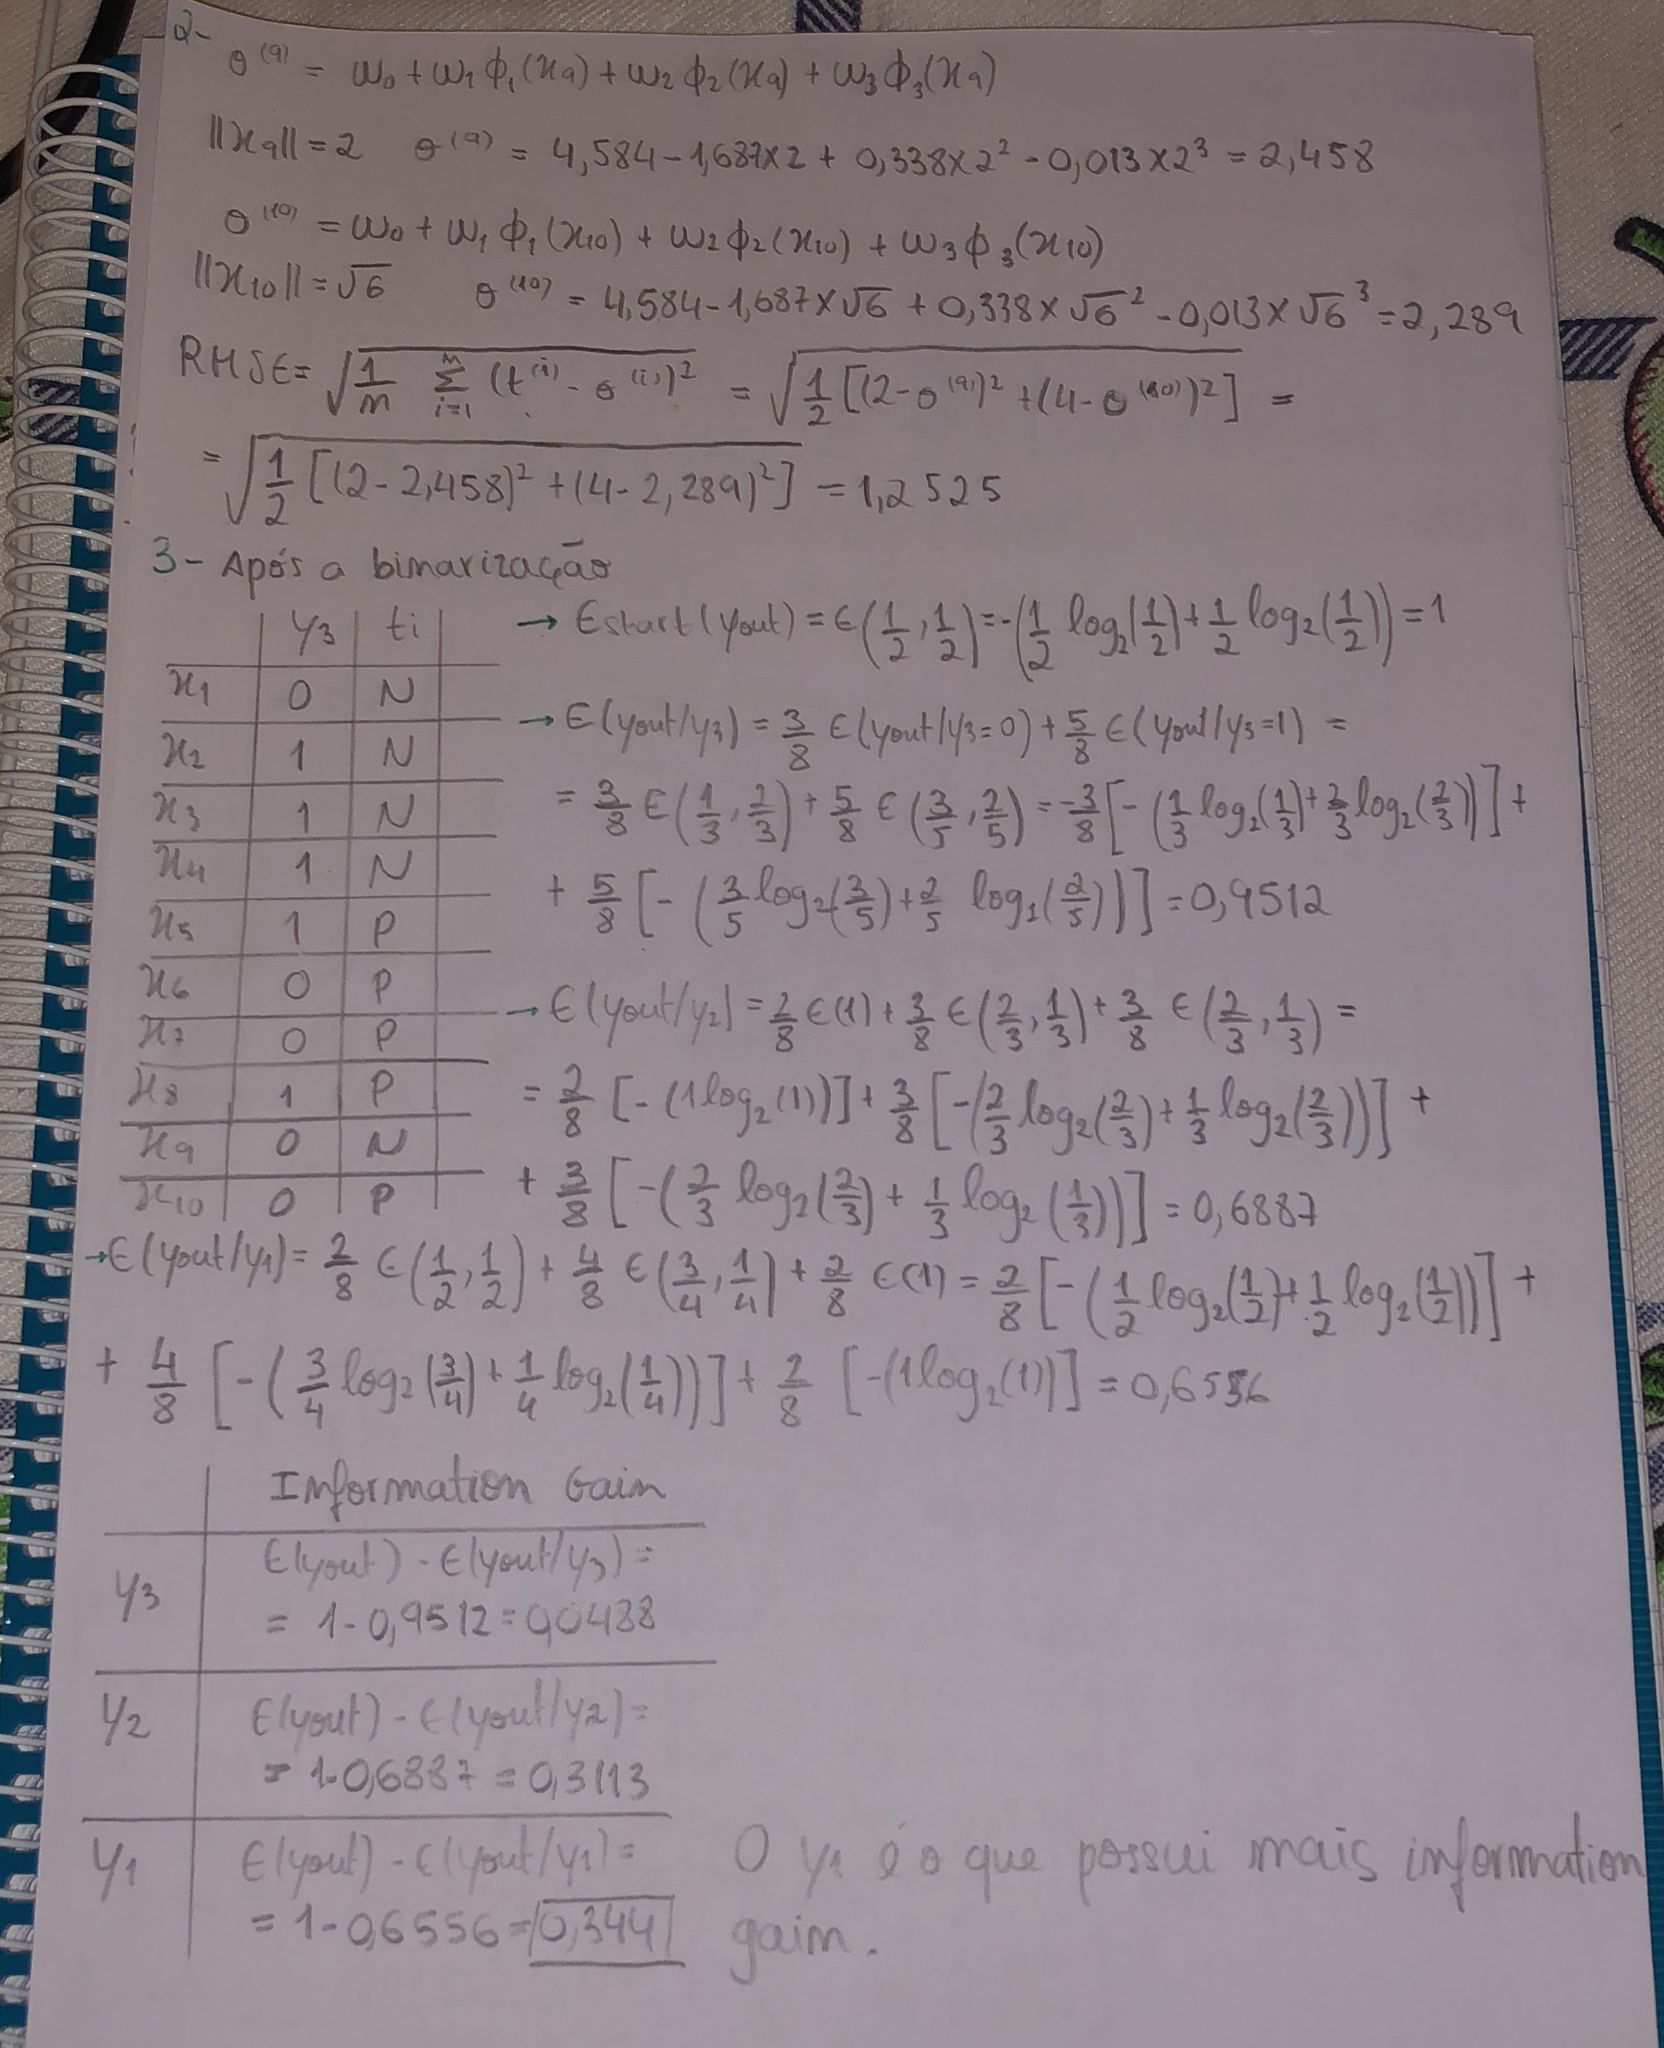 2-
o^(9) = w0 + w1 ϕ1(x9) + w2 ϕ2(x9) + w3 ϕ3(x9)
||x9|| = 2 o^(9) = 4,584 - 1,687×2 + 0,338×2² - 0,013×2³ = 2,458
o^(10) = w0 + w1 ϕ1(x10) + w2 ϕ2(x10) + w3 ϕ3(x10)
||x10|| = √6 o^(10) = 4,584 - 1,687×√6 + 0,338×√6² - 0,013×√6³ = 2,289
RMSE = √(1/m Σ_{i=1}^{m} (t^(i) - o^(i))²) = √(1/2 [(2-o^(9))² + (4-o^(10))²]) =
= √(1/2 [(2-2,458)² + (4-2,289)²]) = 1,2525
3- Após a binarização
y3 ti
x1 0 N
x2 1 N
x3 1 N
x4 1 N
x5 1 P
x6 0 P
x7 0 P
x8 1 P
x9 0 N
x10 0 P
→ Estart(yout) = E(1/2, 1/2) = -(1/2 log2(1/2) + 1/2 log2(1/2)) = 1
→ E(yout/y3) = 3/8 E(yout/y3=0) + 5/8 E(yout/y3=1) =
= 3/8 E(1/3, 2/3) + 5/8 E(3/5, 2/5) = 3/8 [-(1/3 log2(1/3) + 2/3 log2(2/3))] +
+ 5/8 [-(3/5 log2(3/5) + 2/5 log2(2/5))] = 0,9512
→ E(yout/y2) = 2/8 E(1) + 3/8 E(2/3, 1/3) + 3/8 E(2/3, 1/3) =
= 2/8 [-(1 log2(1))] + 3/8 [-(2/3 log2(2/3) + 1/3 log2(2/3))] +
+ 3/8 [-(2/3 log2(2/3) + 1/3 log2(1/3))] = 0,6887
→ E(yout/y1) = 2/8 E(1/2, 1/2) + 4/8 E(3/4, 1/4) + 2/8 E(1) = 2/8 [-(1/2 log2(1/2) + 1/2 log2(1/2))] +
+ 4/8 [-(3/4 log2(3/4) + 1/4 log2(1/4))] + 2/8 [-(1 log2(1))] = 0,6556
Information Gain
y3 E(yout) - E(yout/y3) =
= 1 - 0,9512 = 0,0488
y2 E(yout) - E(yout/y2) =
= 1 - 0,6887 = 0,3113
y1 E(yout) - E(yout/y1) =
= 1 - 0,6556 = 0,344
O y1 é o que possui mais information
gain.